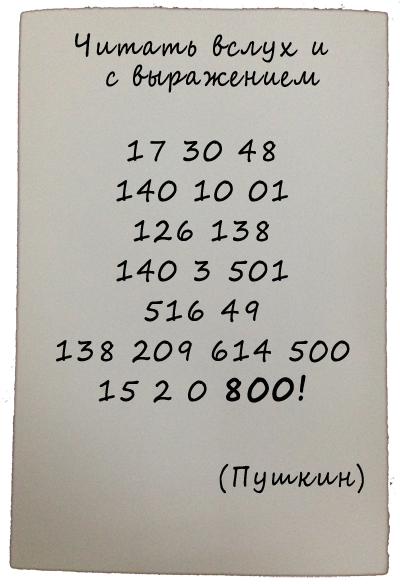 Читать вслух и
с выражением
17 30 48
140 10 01
126 138
140 3 501
516 49
138 209 614 500
15 2 0 800!
(Пушкин)